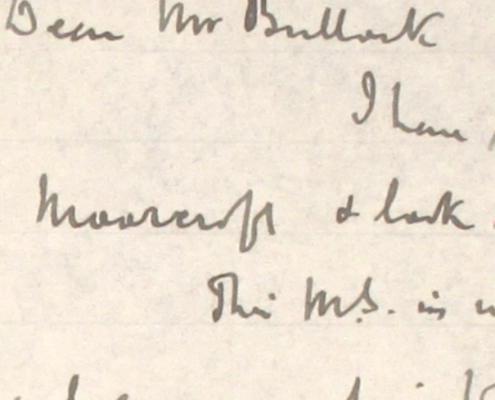 Dear Mr Bullock
I have
Moorcroft & look
This M.S. is